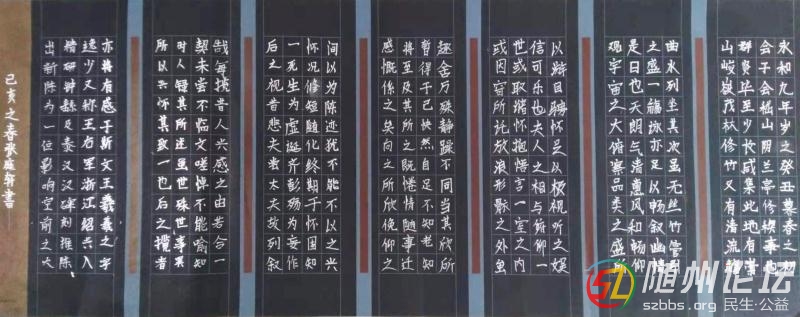 永和九年岁之癸丑暮春之初
会于会嵇山阴兰亭修禊事也
群贤毕至少长咸集此地有崇
山峻嶺茂林修竹又有清流
曲水列坐其次虽无丝竹管弦
之盛一觞詠亦足以畅叙幽情
是日也天朗气清惠风和畅仰
观宇宙之大俯察品类之盛所
以游目骋怀足以极视听之娱
信可乐也夫人之相与俯仰一
世或取诸怀抱悟言一室之内
或因寄所托放浪形骸之外虽
趣舍万殊静躁不同当其欣所
暂得于己怏然自足不知老知
将至及其所之既惓情随事迁
感慨係之矣向之所欣俛仰之
间以为陈迹犹不能不以之兴
怀况修短随化终期于怀固知
一死生为虚诞齐彭殇为妄作
后之视昔悲夫故列叙
哉每揽昔人兴感之由若合一
契未尝不临文嗟悼不能喻知
时人録其所述虽世殊世事異
所以兴怀其致一也后之揽者
亦将有感于斯文王羲之字
逸少又称王右军浙江绍兴入
精研钟繇及秦汉碑刻推陈
出新为一位影响空前之大
己亥之春张庭轩書
随州论坛
szbbs.org 民生·公益